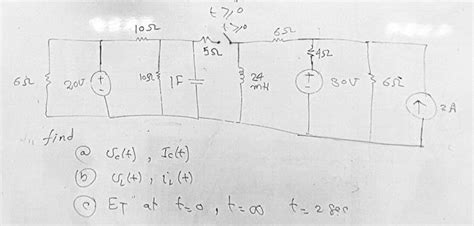 t ≥ 0
t ≥ 0
10Ω
5Ω
6Ω
4Ω
6Ω
20V
10Ω
1F
24
mH
80V
6Ω
2A
find
(a) Vc(t) , Ic(t)
(b) VL(t) , iL(t)
(c) ET at t=0 , t=∞ t=2 sec